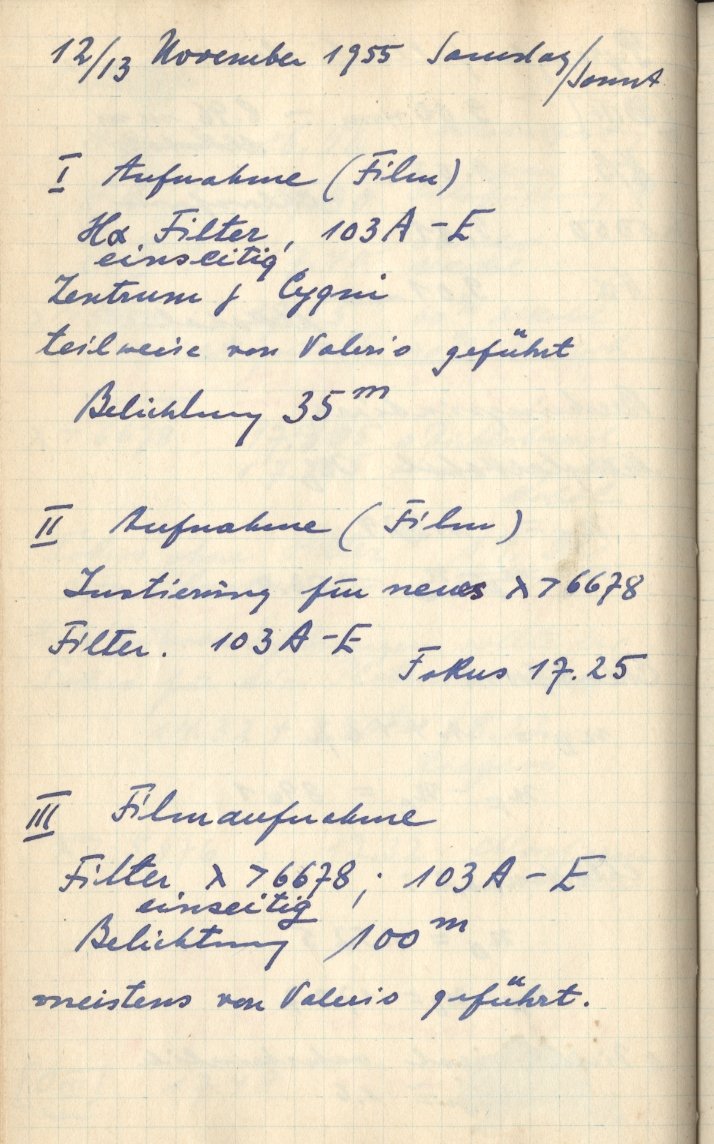 12/13 November 1955 Samstag/Sonnt
I Aufnahme (Film)
Hα Filter, 103A-E
einseitig
Zentrum γ Cygni
teilweise von Valerio geführt
Belichtung 35ᵐ
II Aufnahme (Film)
Justierung für neues λ > 6678
Filter. 103A-E
Fokus 17.25
III Filmaufnahme
Filter λ > 6678; 103A-E
einseitig
Belichtung 100ᵐ
meistens von Valerio geführt.